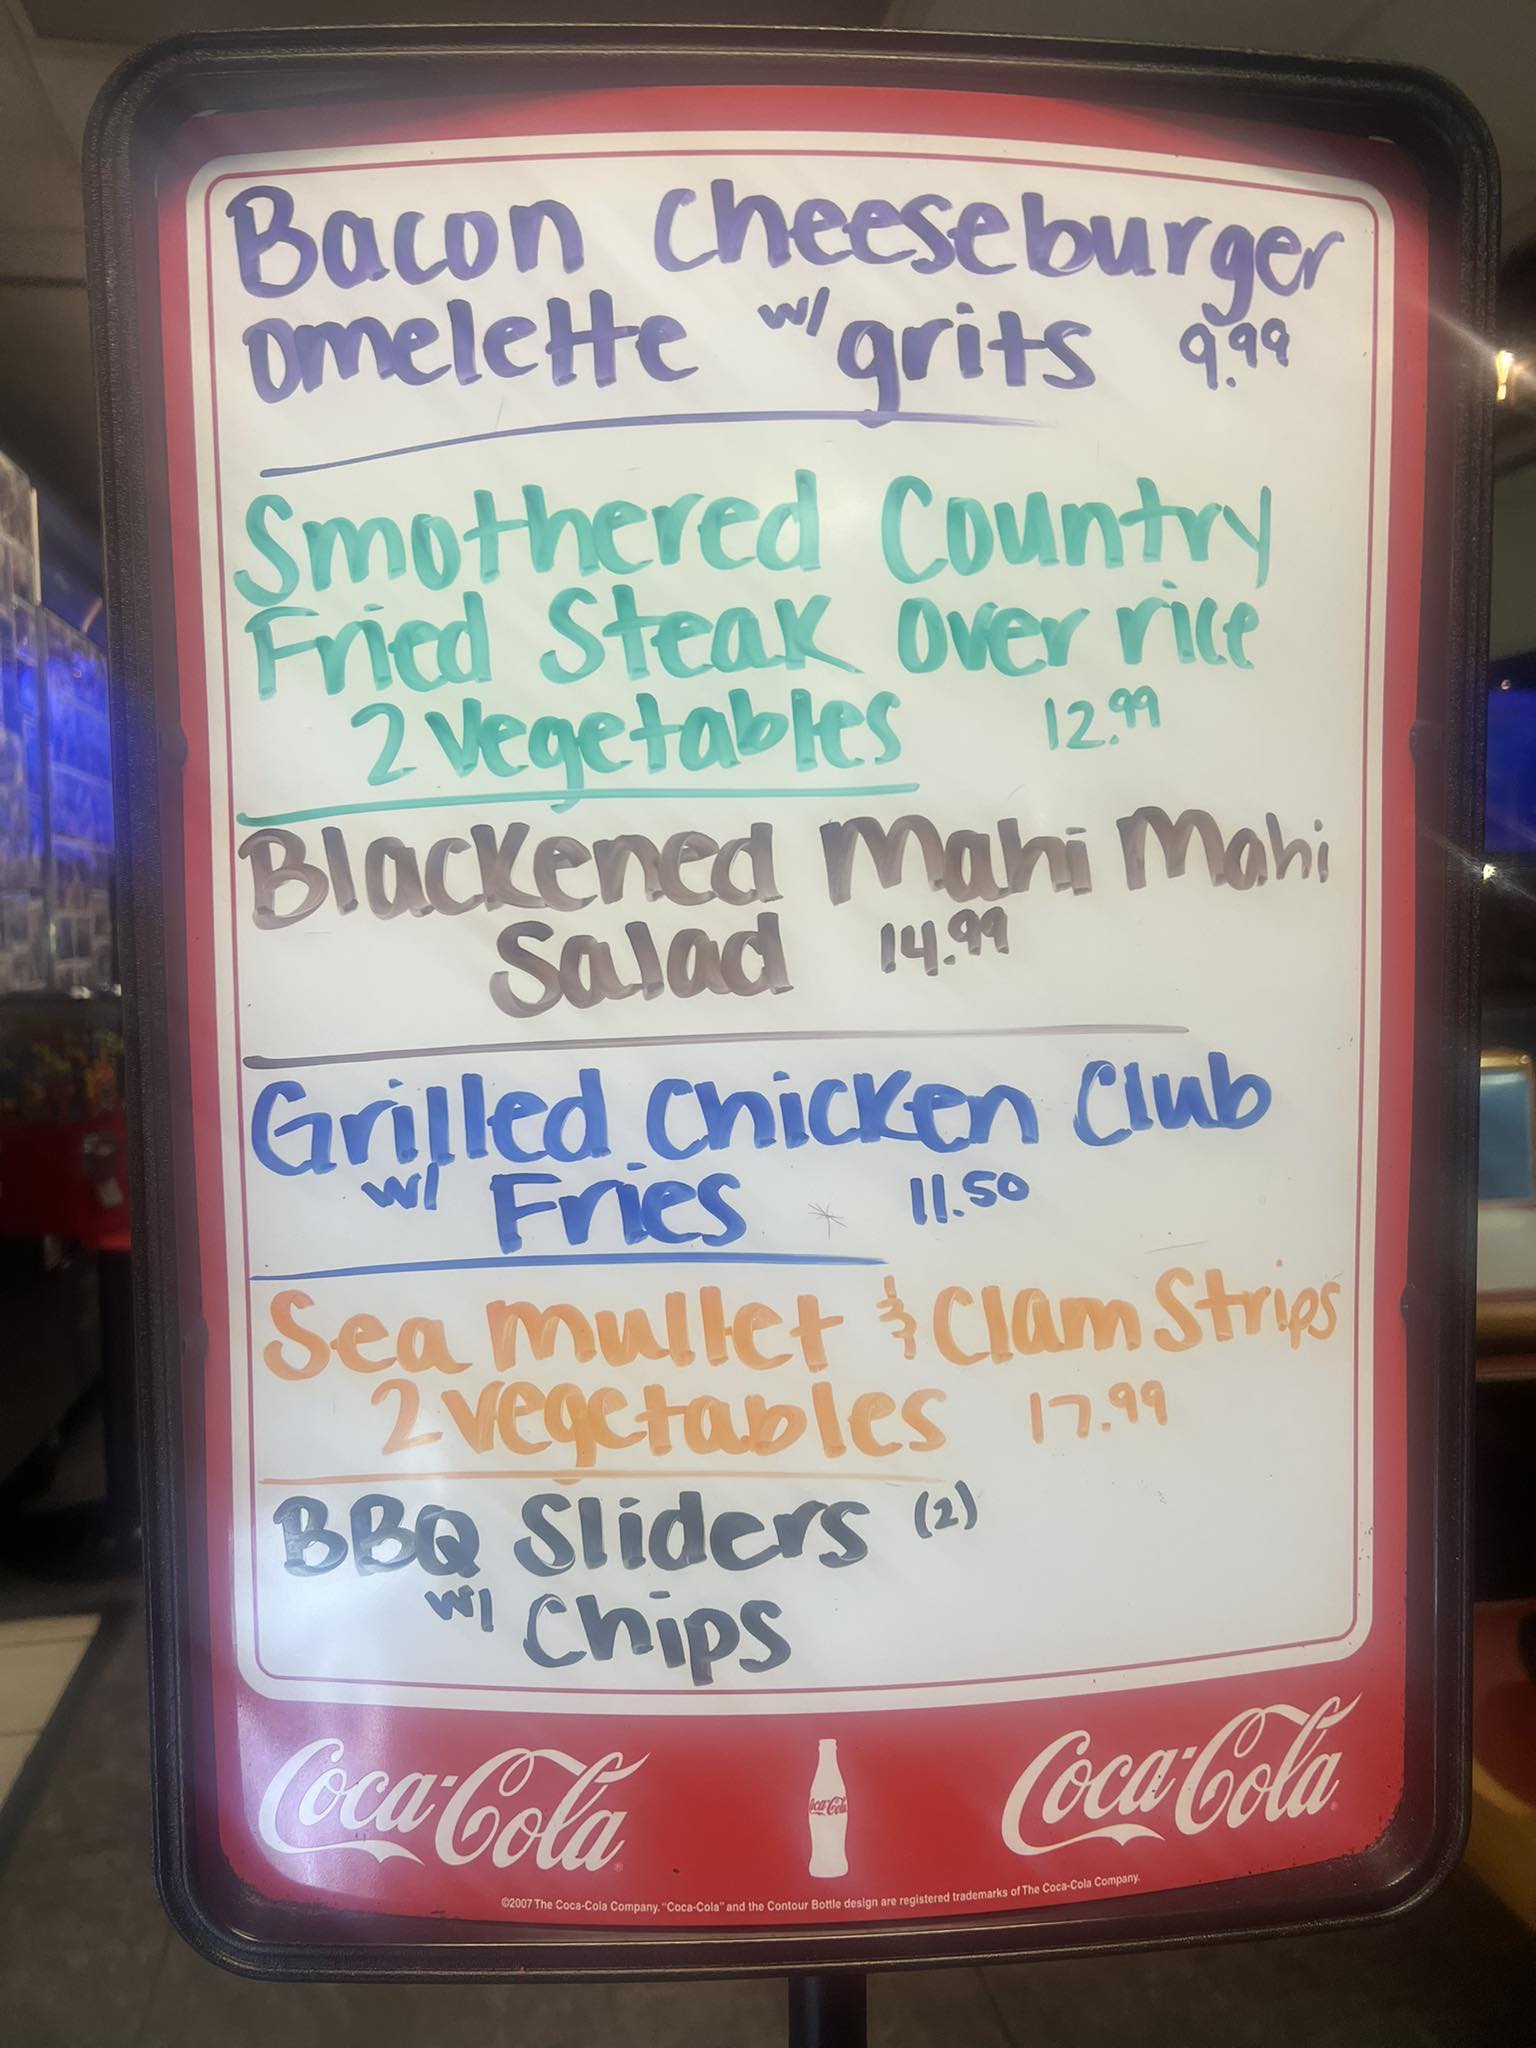 Bacon Cheeseburger
omelette w/ grits 9.99
Smothered Country
Fried Steak over rice
2 vegetables 12.99
Blackened Mahi Mahi
Salad 14.99
Grilled Chicken Club
w/ Fries 11.50
Sea mullet & Clam Strips
2 vegetables 17.99
BBQ Sliders (2)
w/ Chips
Coca-Cola Coca-Cola Coca-Cola
©2007 The Coca-Cola Company. "Coca-Cola" and the Contour Bottle design are registered trademarks of The Coca-Cola Company.